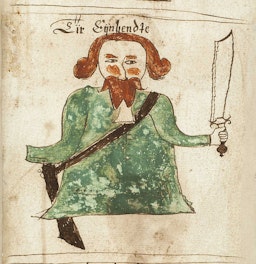 Tir Eynhendte